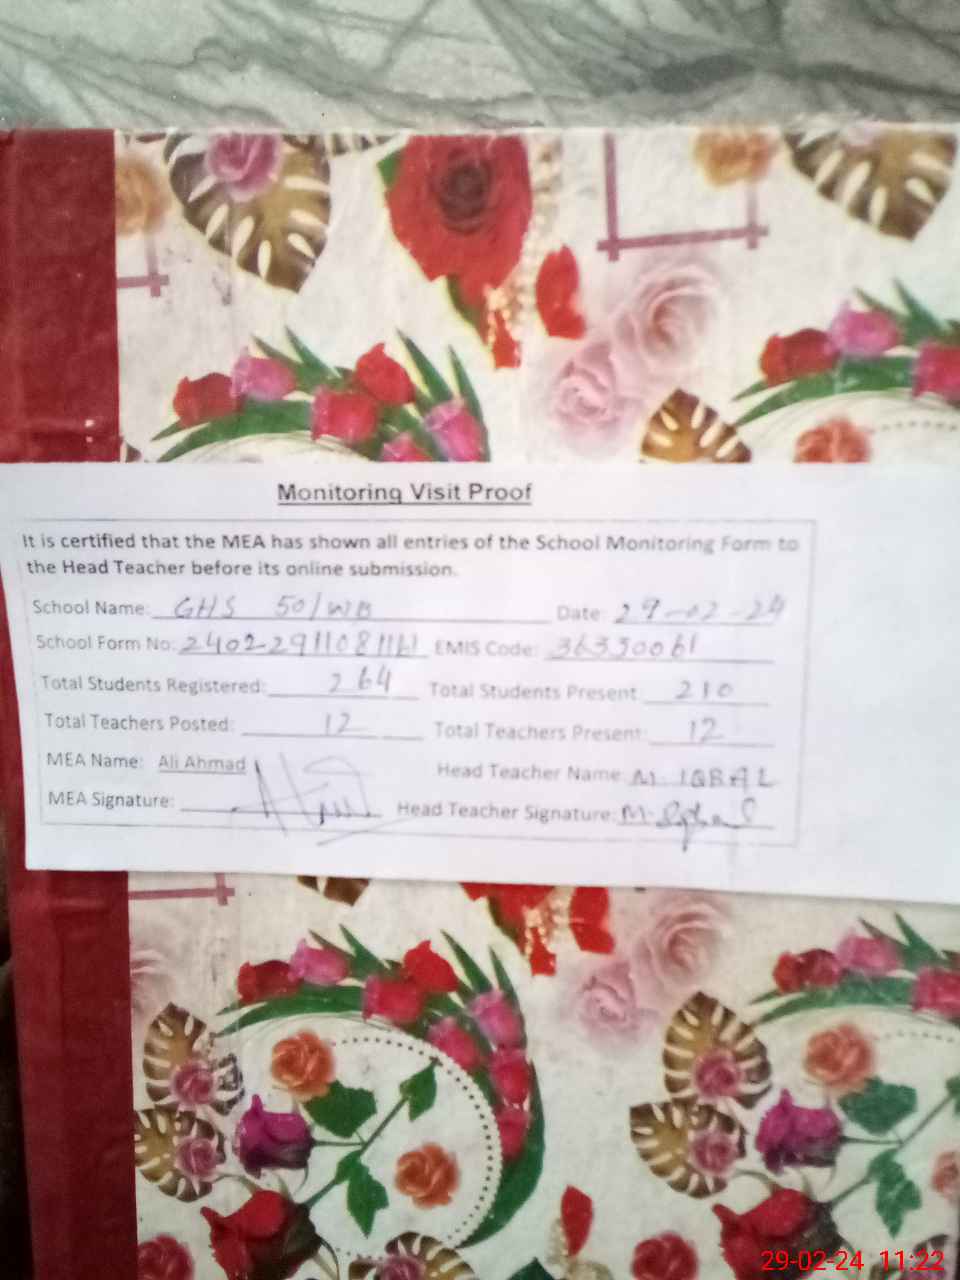 Monitoring Visit Proof
It is certified that the MEA has shown all entries of the School Monitoring Form to
the Head Teacher before its online submission.
School Name: GHS 50/WB Date: 29-02-24
School Form No: EMIS Code: 36330061
Total Students Registered: 264 Total Students Present: 210
Total Teachers Posted: 12 Total Teachers Present: 12
MEA Name: Ali Ahmad Head Teacher Name: M. IQBAL
MEA Signature: Head Teacher Signature: M. Iqbal
29-02-24 11:22